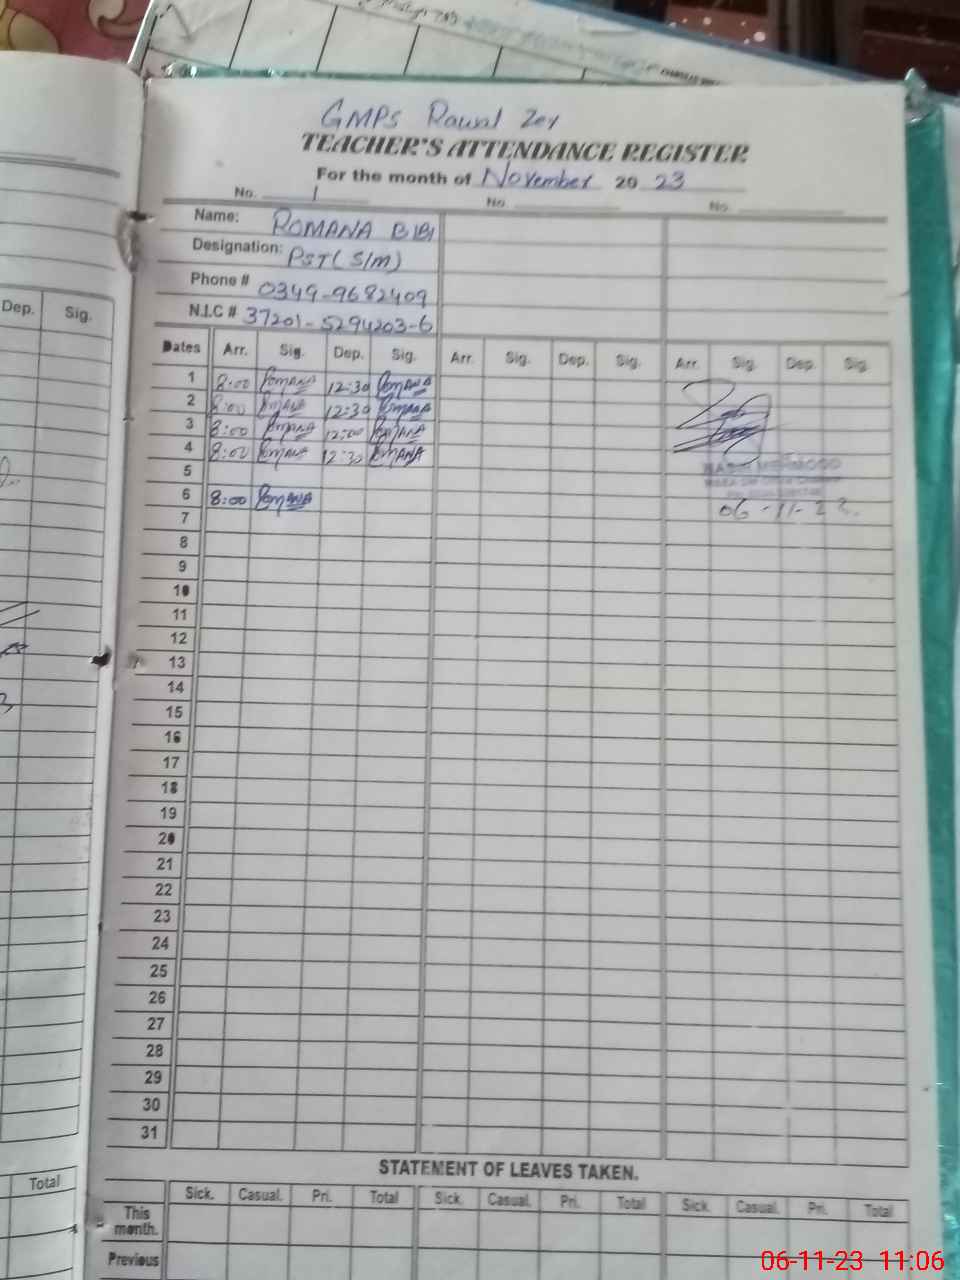 GMPS Rawal Zer
TEACHER'S ATTENDANCE REGISTER
For the month of November 20 23
No. 1 No. No.
Name: ROMANA BIBI
Designation: PST (S/M)
Phone # 0349-9682409
N.I.C # 37201-5294203-6
Dep. Sig.
Dates Arr. Sig. Dep. Sig. Arr. Sig. Dep. Sig. Arr. Sig. Dep. Sig.
1 8:00 Romana 12:30 Romana
2 8:00 Romana 12:30 Romana
3 8:00 Romana 12:00 Romana
4 8:00 Romana 12:30 Romana
5
6 8:00 Romana
06-11-23.
7
8
9
10
11
12
13
14
15
16
17
18
19
20
21
22
23
24
25
26
27
28
29
30
31
STATEMENT OF LEAVES TAKEN.
Total
Sick. Casual. Pri. Total Sick. Casual. Pri. Total Sick. Casual. Pri. Total
This
month.
Previous
06-11-23 11:06